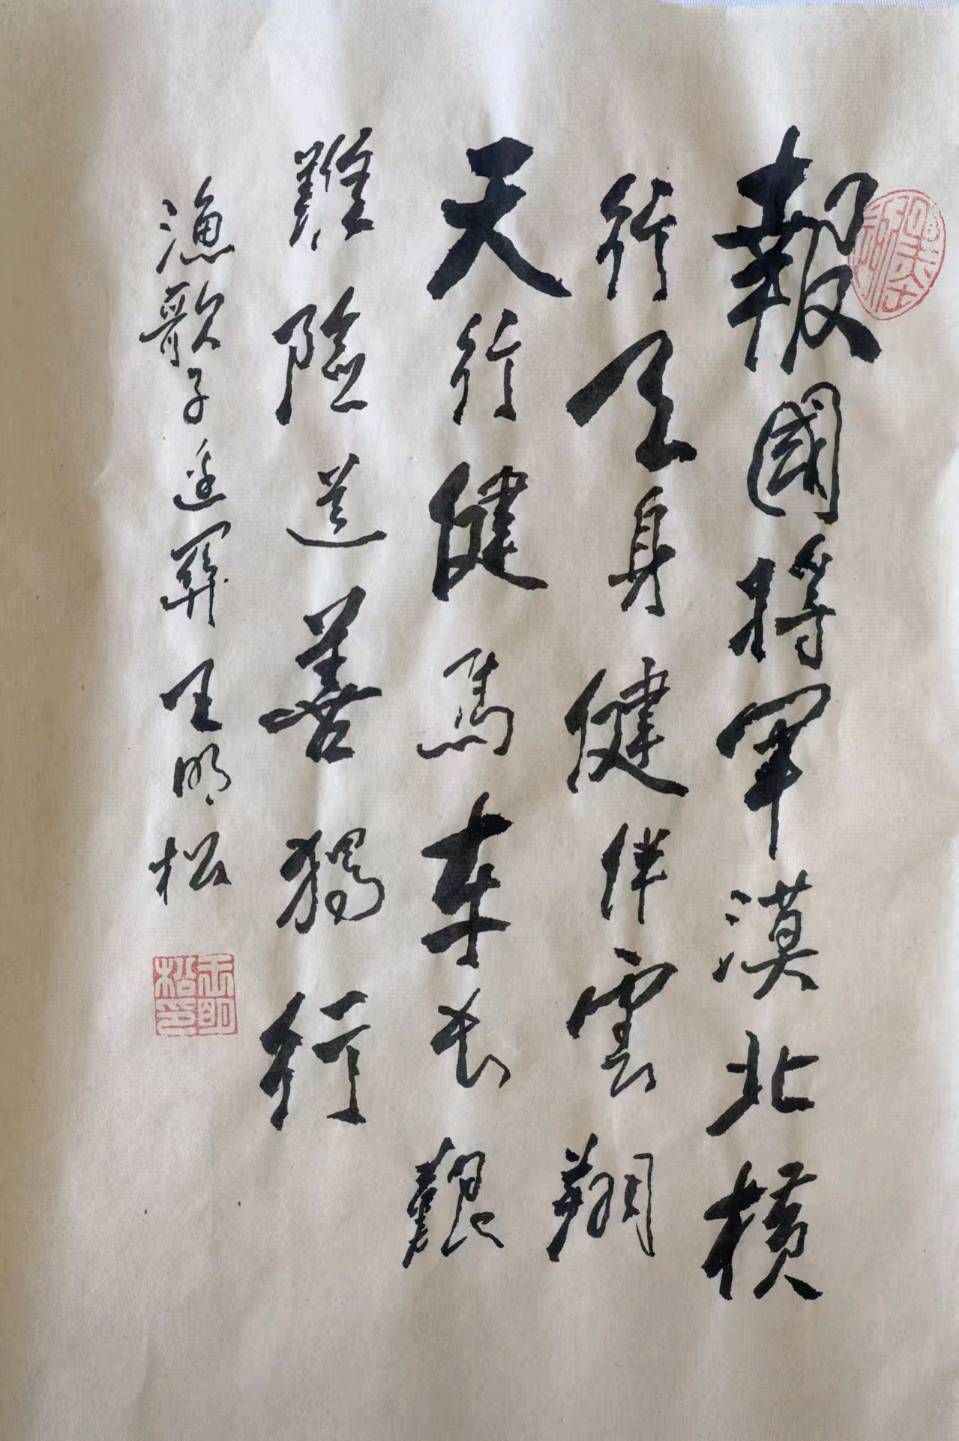 報國將軍漠北橫
行全身健伴雲翔
天行健馬車长艱
難險道善獨行
漁歌子 王明松
王明松印